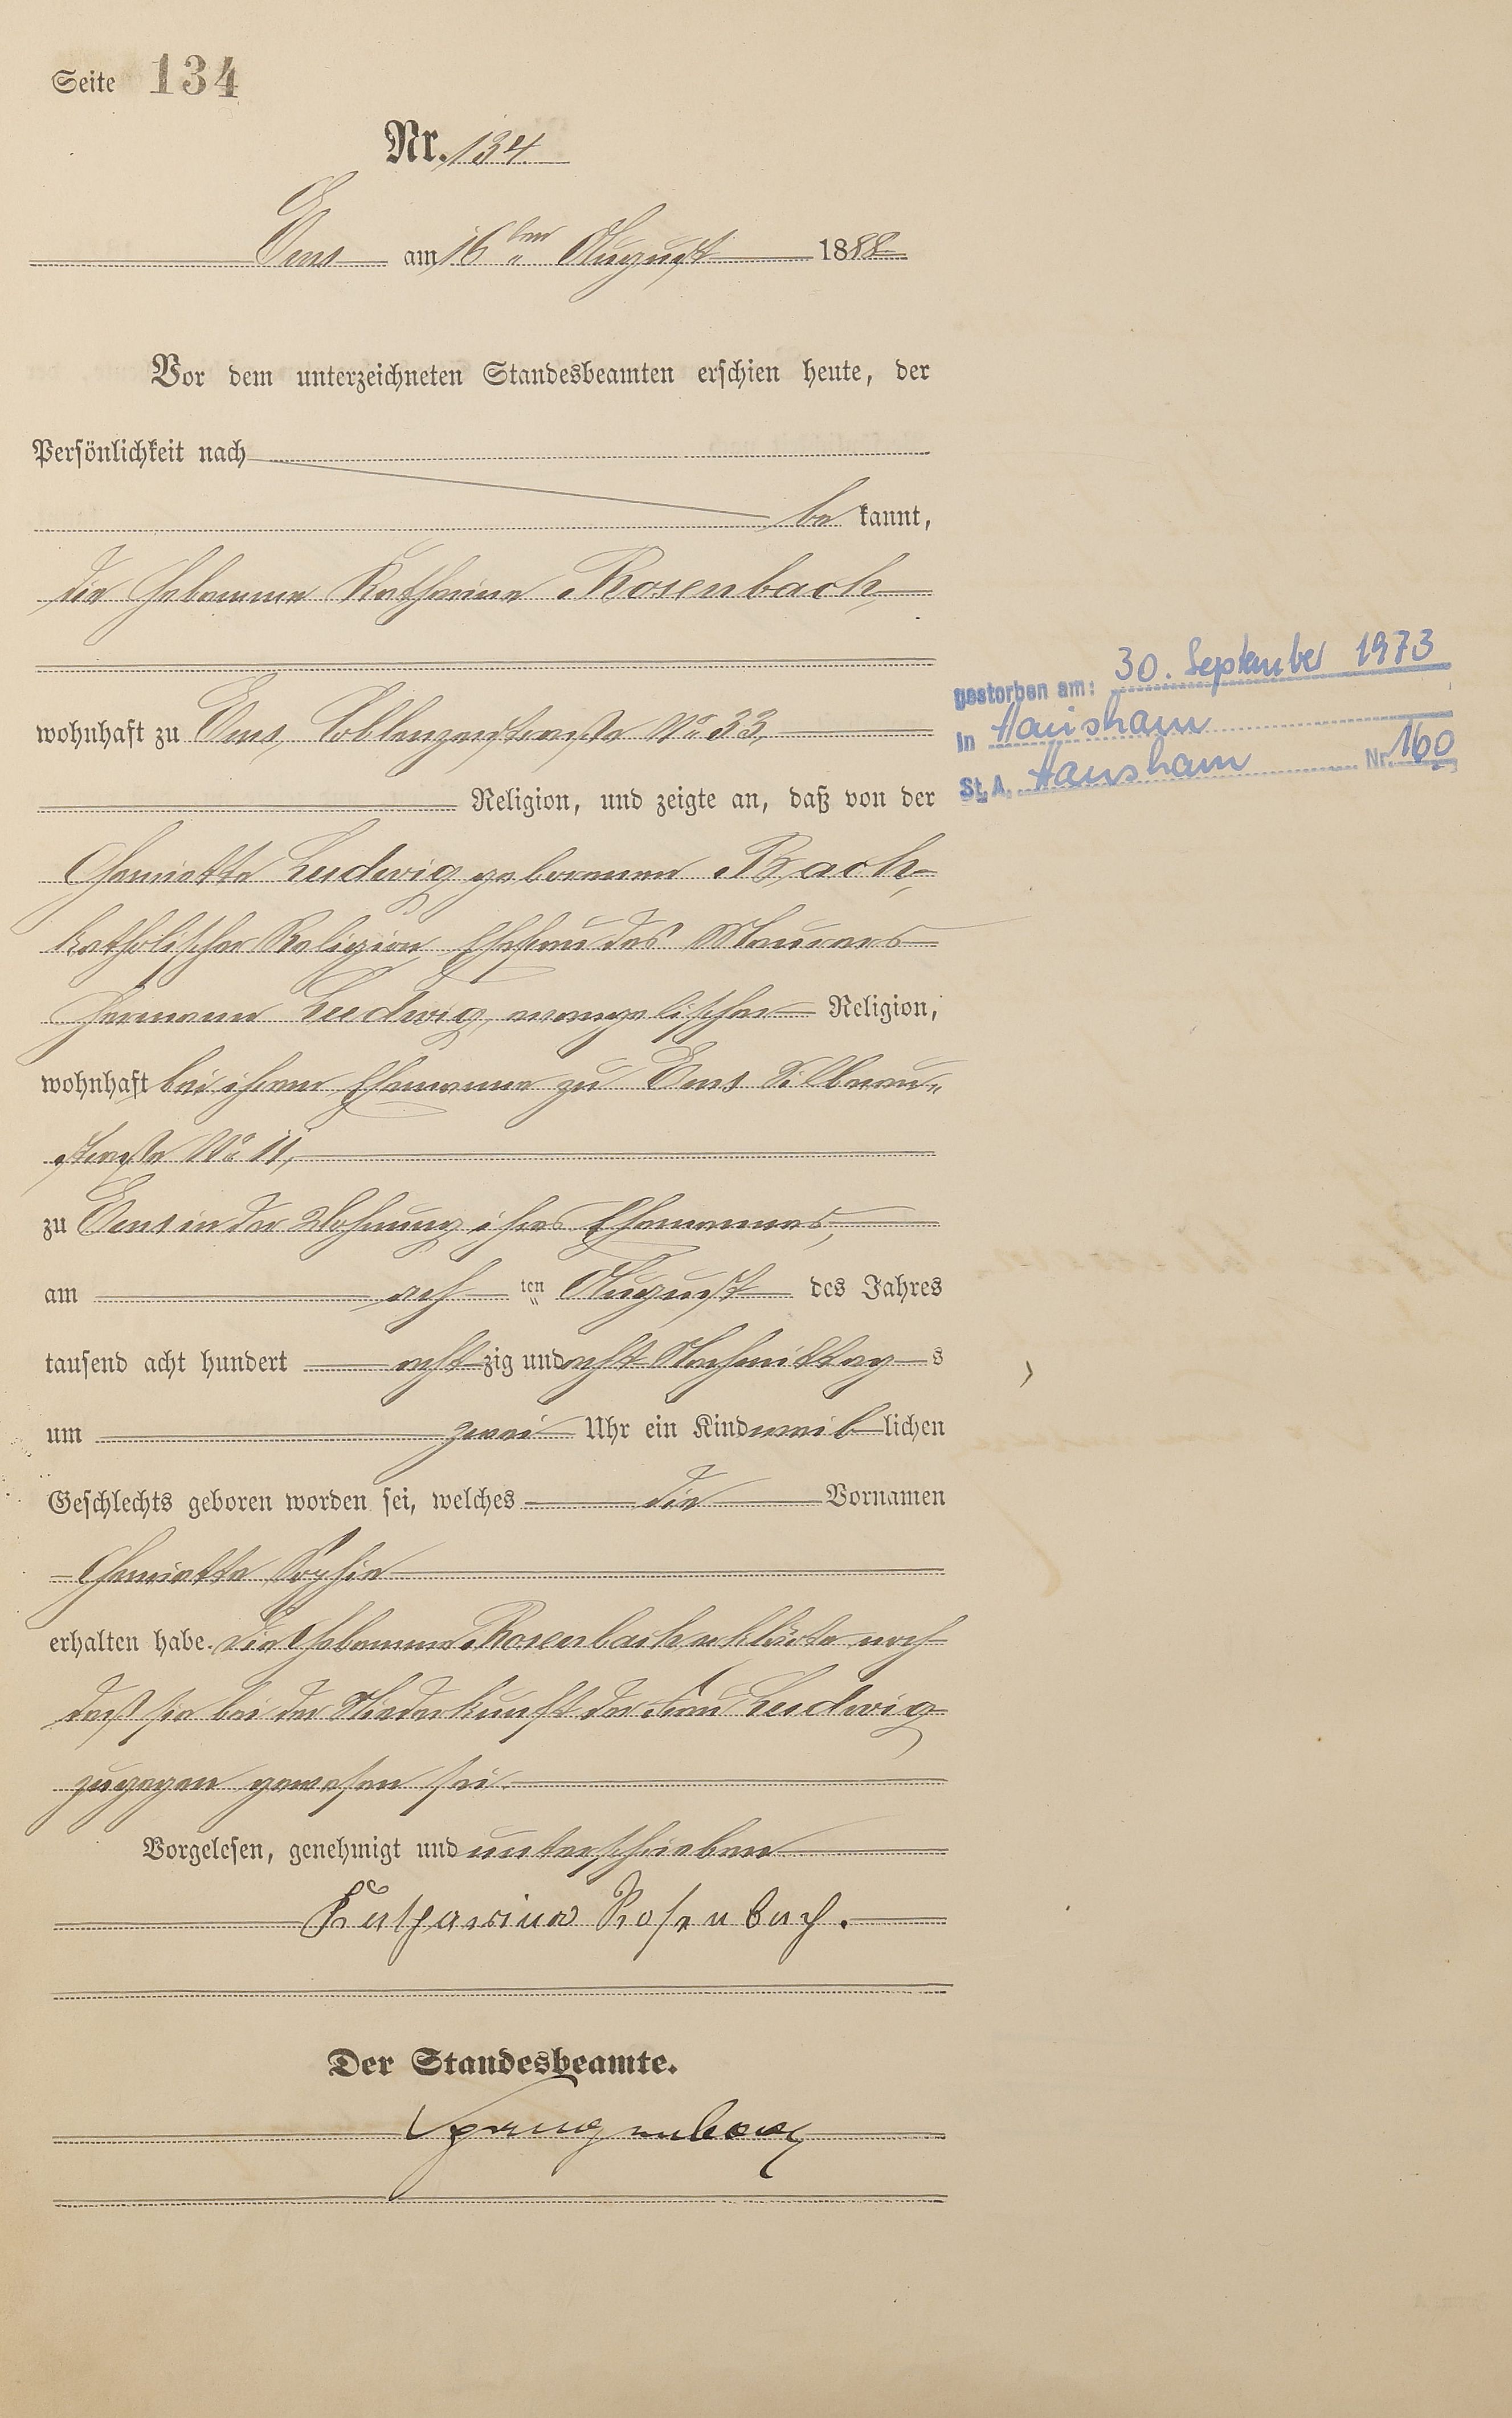 Seite 134
Nr. 134.
Ems am 16ten August 1888
Vor dem unterzeichneten Standesbeamten erschien heute, der
Persönlichkeit nach
be kannt,
die Hebamme Katharina Rosenbach,
wohnhaft zu Ems, Coblenzerstraße No 33,
Religion, und zeigte an, daß von der
Henriette Ludwig geborenen Bach,
katholischer Religion, Ehefrau des Maurers
Hermann Ludwig, evangelischer Religion,
wohnhaft bei ihrem Ehemanne zu Ems Silberau-
straße No 11,
zu Ems in der Wohnung ihres Ehemannes,
am ach ten August des Jahres
tausend acht hundert acht zig und acht Nachmittag s
um zwei Uhr ein Kind weib lichen
Geschlechts geboren worden sei, welches die Vornamen
Henriette Sophie
erhalten habe. Die Hebamme Rosenbach erklärte noch
daß sie bei der Niederkunft der Frau Ludwig
zugegen gewesen sei.
Vorgelesen, genehmigt und unterschrieben
Katharina Rosenbach.
Der Standesbeamte.
gestorben am: 30. September 1973
in Hausham
St. A. Hausham Nr. 160